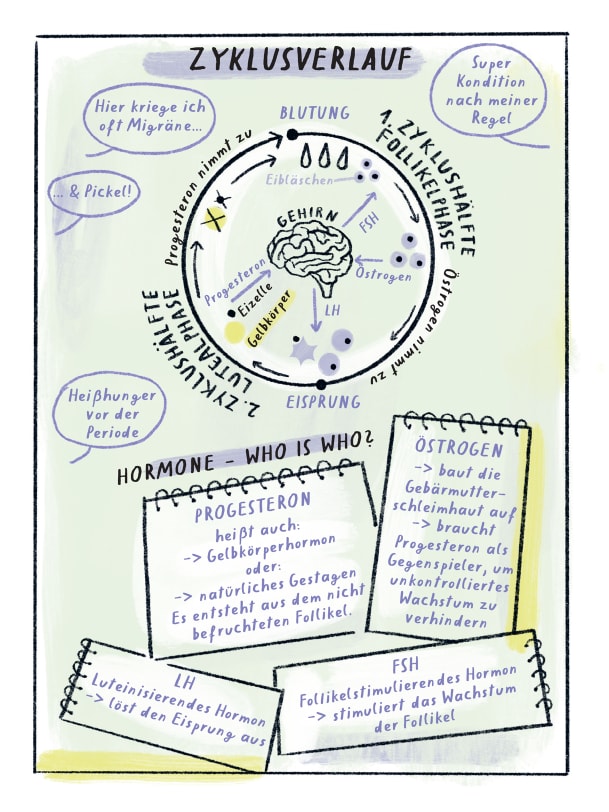 ZYKLUSVERLAUF
Hier kriege ich
oft Migräne...
... & Pickel!
Super
Kondition
nach meiner
Regel
BLUTUNG
1. ZYKLUSHÄLFTE
FOLLIKELPHASE
Östrogen nimmt zu
Progesteron nimmt zu
Eibläschen
GEHIRN
FSH
Östrogen
LH
Progesteron
Eizelle
Gelbkörper
2. ZYKLUSHÄLFTE
LUTEALPHASE
EISPRUNG
Heißhunger
vor der
Periode
HORMONE - WHO IS WHO?
PROGESTERON
heißt auch:
-> Gelbkörperhormon
oder:
-> natürliches Gestagen
Es entsteht aus dem nicht
befruchteten Follikel.
ÖSTROGEN
-> baut die
Gebärmutter-
schleimhaut auf
-> braucht
Progesteron als
Gegenspieler, um
unkontrolliertes
Wachstum zu
verhindern
LH
Luteinisierendes Hormon
-> löst den Eisprung aus
FSH
Follikelstimulierendes Hormon
-> stimuliert das Wachstum
der Follikel